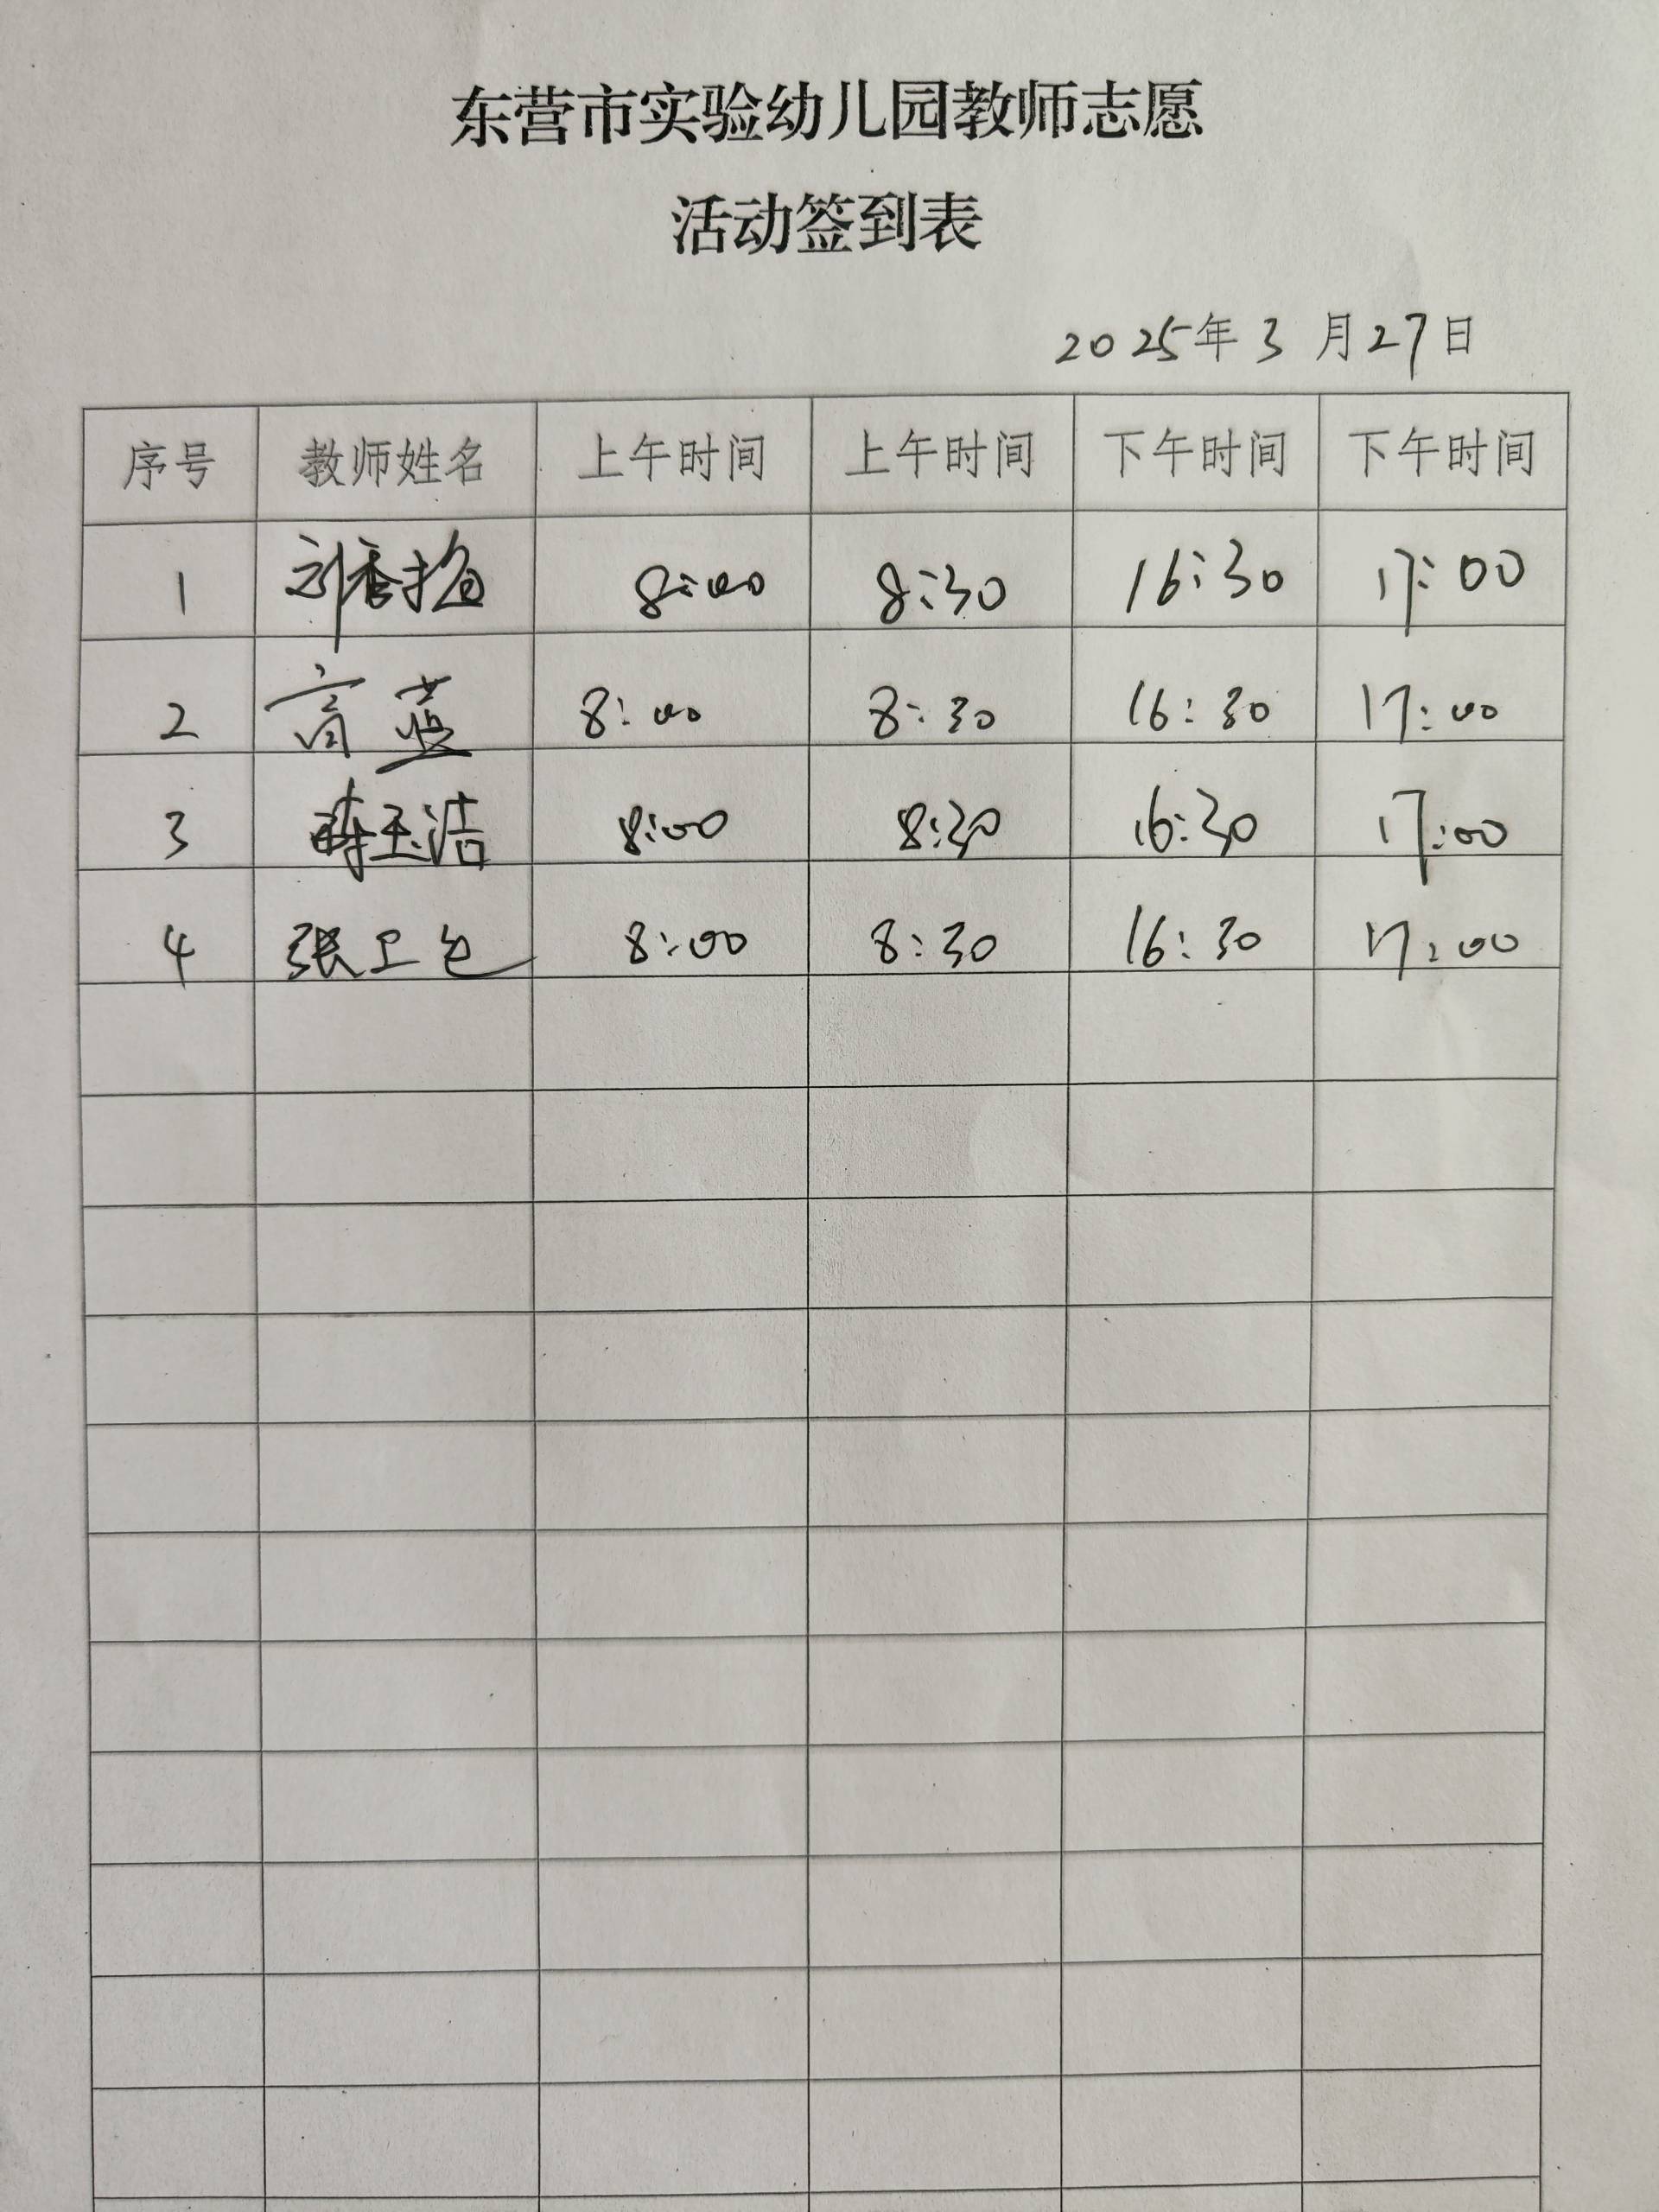 东营市实验幼儿园教师志愿
活动签到表
2025年3月27日
序号 教师姓名 上午时间 上午时间 下午时间 下午时间
1 8:00 8:30 16:30 17:00
2 高蓝 8:00 8:30 16:30 17:00
3 8:00 8:30 16:30 17:00
4 张卫 8:00 8:30 16:30 17:00